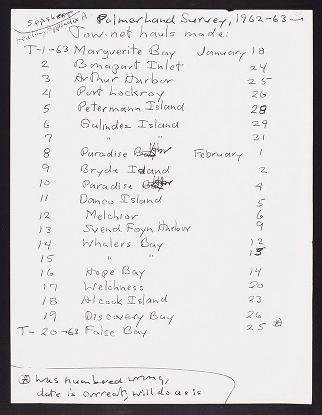 Palmerland Survey, 1962-63
Tow-net hauls made:
T-1-63 Marguerite Bay January 18
2 Bonapart Inlet 24
3 Arthur Harbor 25
4 Port Lockroy 26
5 Petermann Island 28
6 Galindez Island 29
7 " " 31
8 Paradise February 1
9 Bryde Island 2
10 Paradise 4
11 Danco Island 5
12 Melchior 6
13 Svend Foyn Harbor 9
14 Whalers Bay 12
15 " " 13
16 Hope Bay 14
17 Welchness 20
18 Alcock Island 23
19 Discovery Bay 26
T-20-63 False Bay 25 *
* was numbered wrong,
date is correct, will do as is